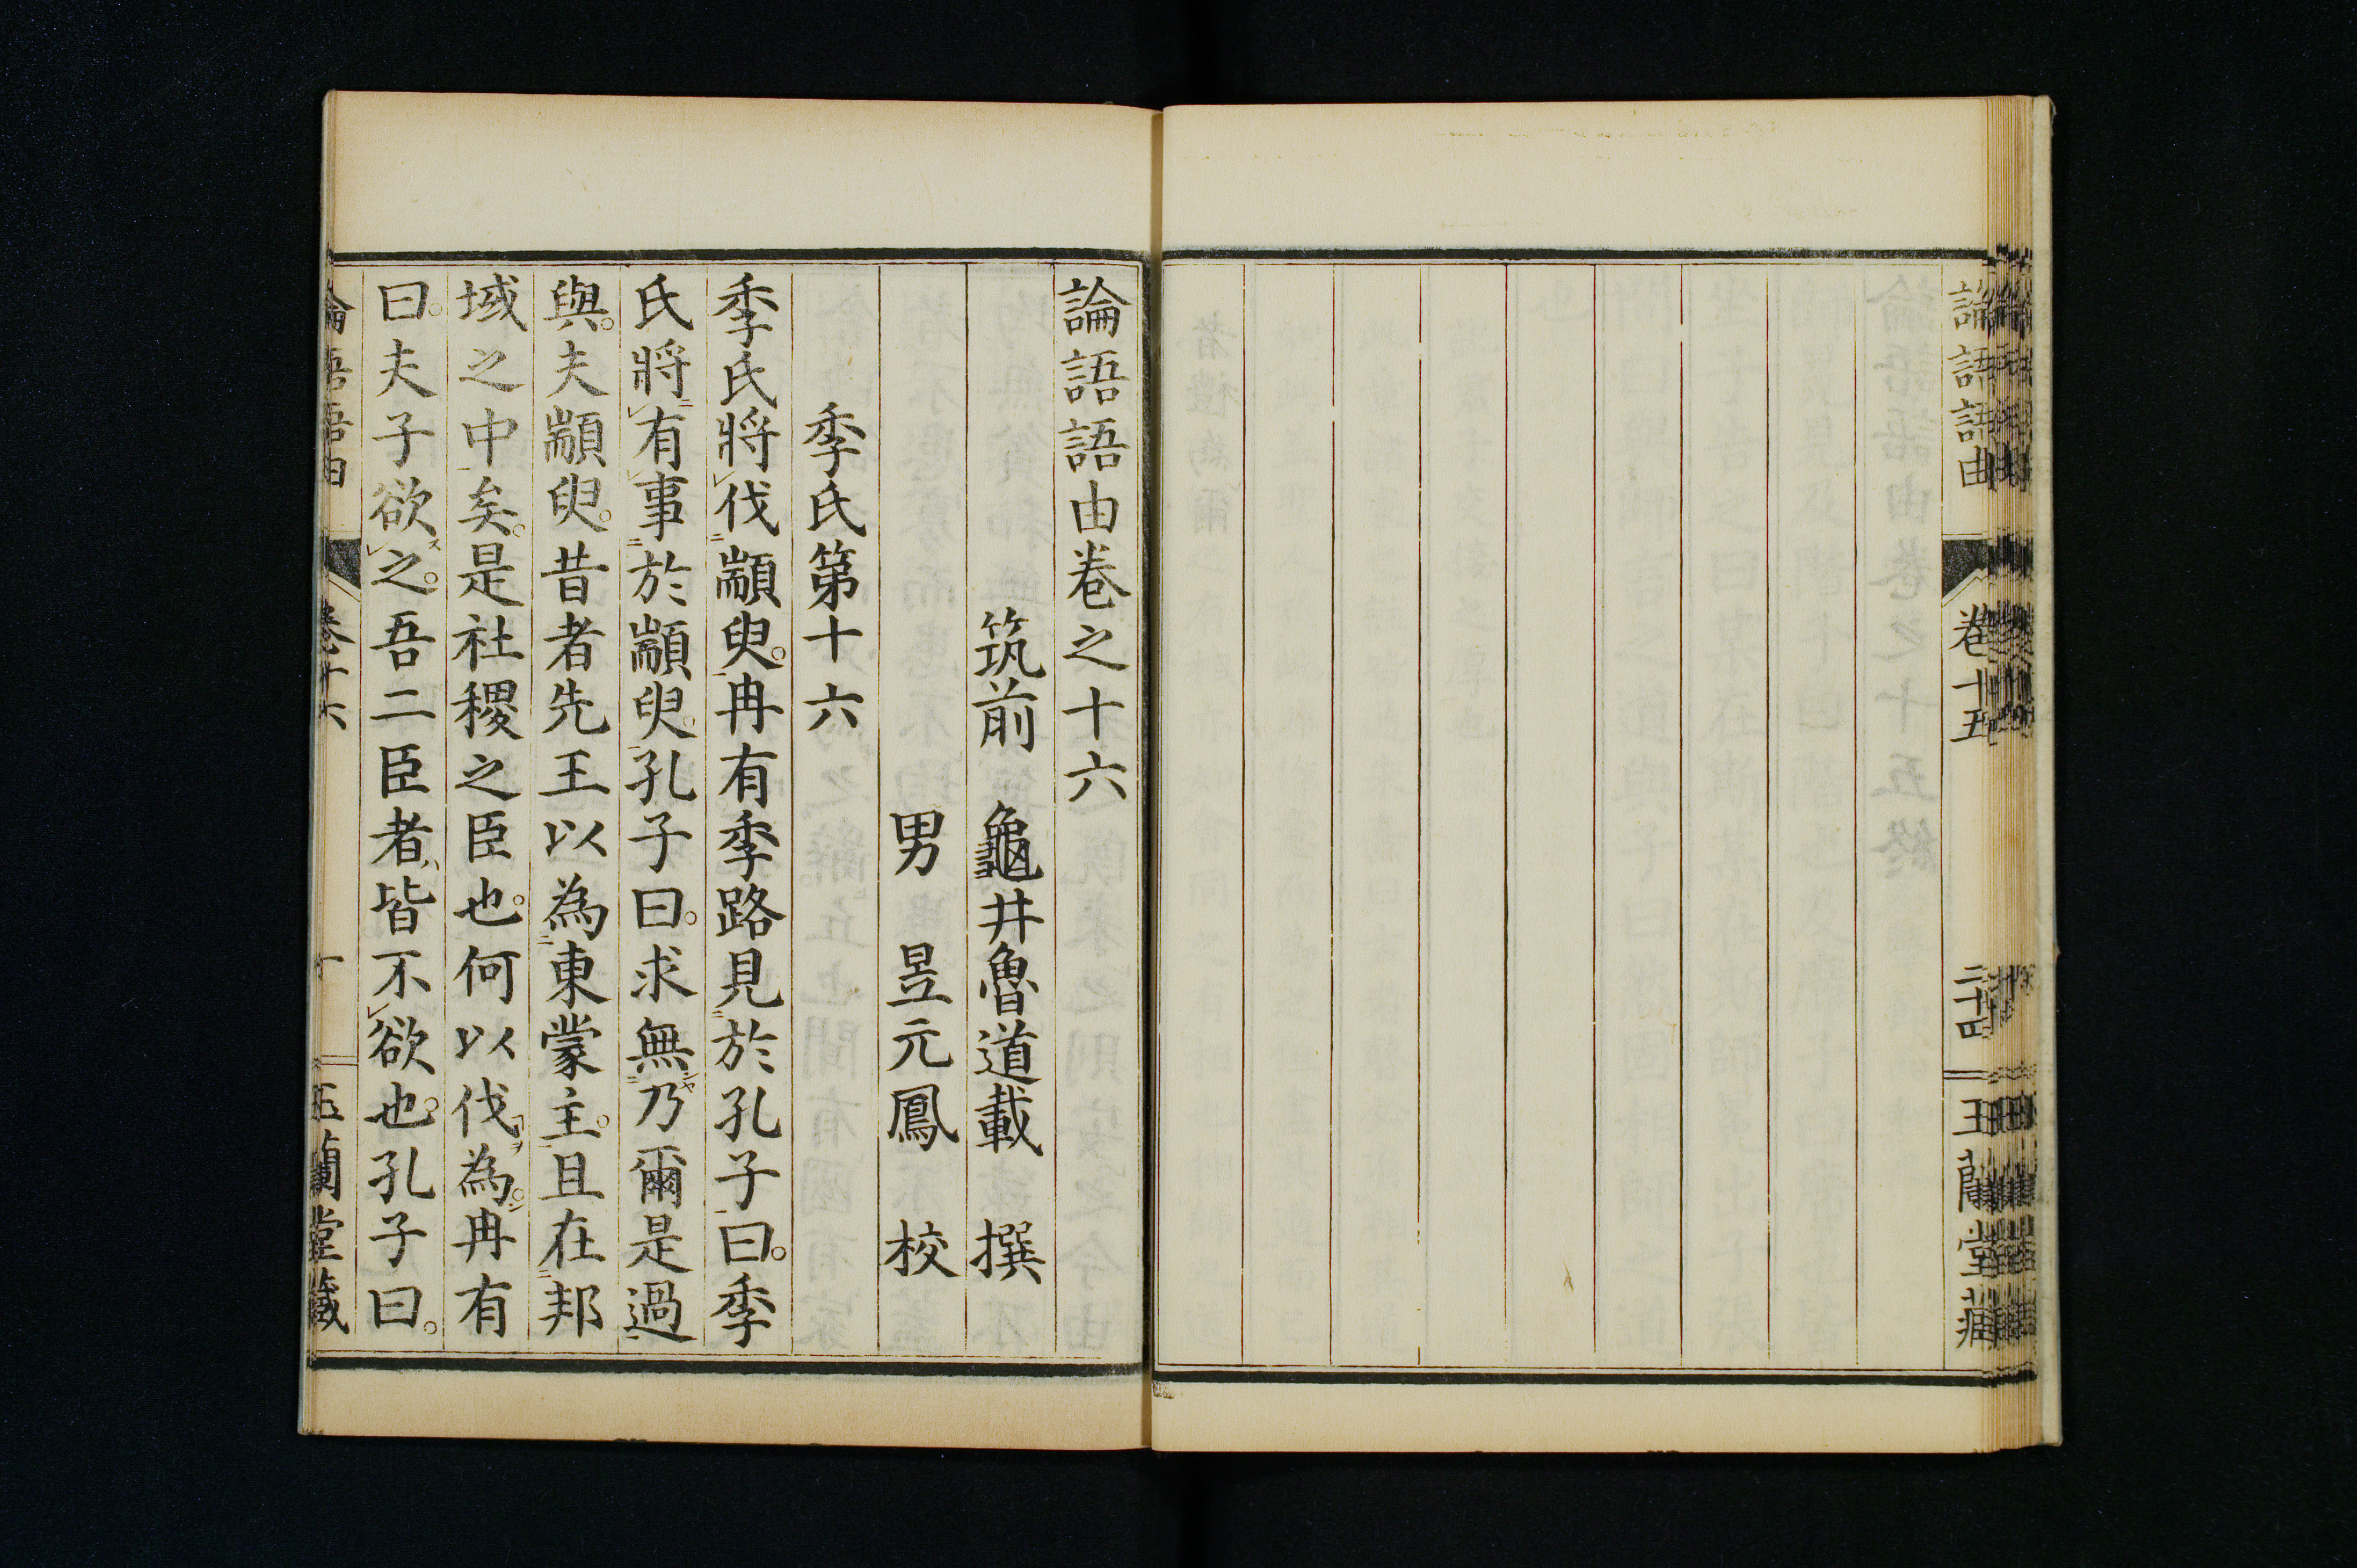 論語語由
卷十五
二十四
玉蘭堂藏
論語語由卷之十六
筑前 龜井魯道載 撰
男 昱元鳳 校
季氏第十六
季氏將伐顓臾。冉有季路見於孔子曰。季
氏將有事於顓臾。孔子曰。求無乃爾是過
與。夫顓臾。昔者先王以為東蒙主。且在邦
域之中矣。是社稷之臣也。何以伐為。冉有
曰。夫子欲之。吾二臣者、皆不欲也。孔子曰。
論語語由
卷十六
玉蘭堂藏